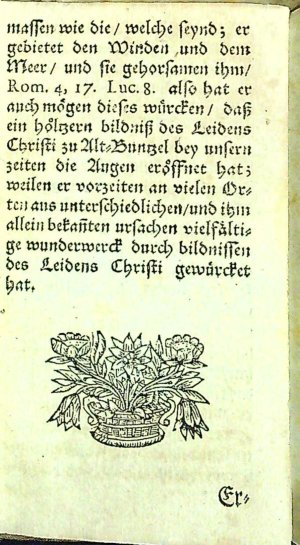 massen wie die/ welche seynd; er
gebietet den Winden und dem
Meer/ und sie gehorsamen ihm/
Rom. 4, 17. Luc. 8. also hat er
auch mögen dieses würcken/ daß
ein höltzern bildniß des Leidens
Christi zu Alt-Buntzel bey unsern
zeiten die Augen eröffnet hat;
weilen er vorzeiten an vielen Or-
ten aus unterschiedlichen/und ihm
allein bekañten ursachen vielfälti-
ge wunderwerck durch bildnissen
des Leidens Christi gewürcket
hat.
Er-